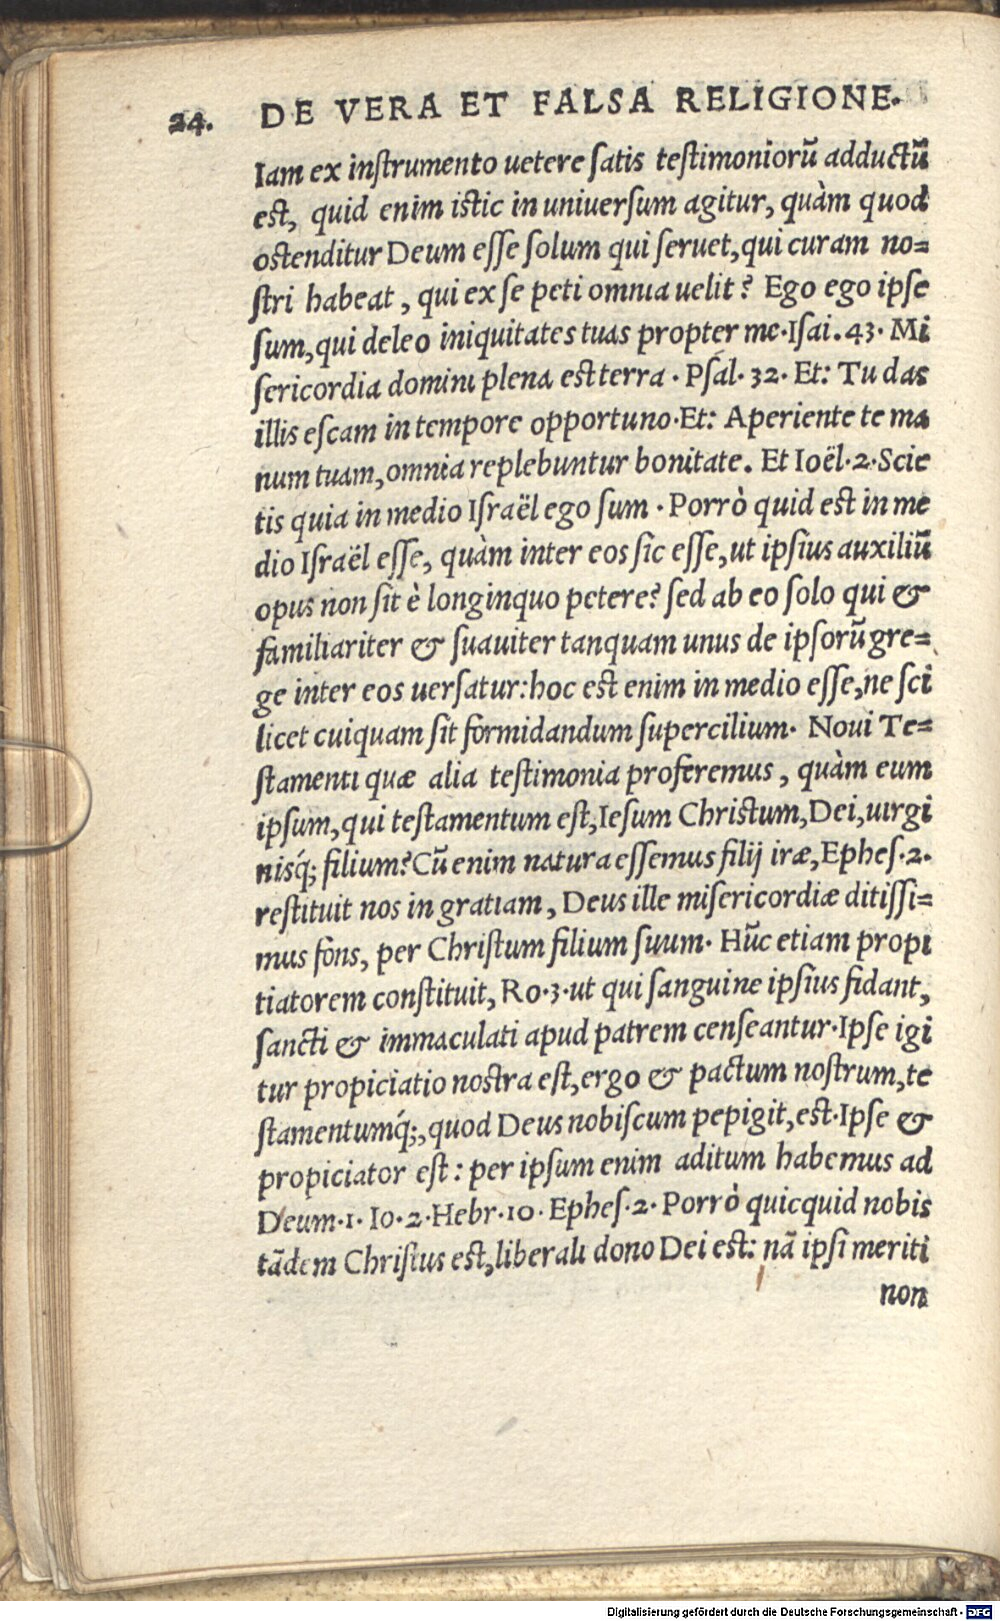 24. DE VERA ET FALSA RELIGIONE.
Iam ex inſtrumento uetere ſatis teſtimoniorũ adductũ
eſt, quid enim iſtic in uniuerſum agitur, quàm quod
oſtenditur Deum eſſe ſolum qui ſeruet, qui curam no=
ſtri habeat, qui ex ſe peti omnia uelit? Ego ego ipſe
ſum, qui deleo iniquitates tuas propter me. Iſai. 43. Mi
ſericordia domini plena eſt terra. Pſal. 32. Et: Tu das
illis eſcam in tempore opportuno. Et: Aperiente te ma
num tuam, omnia replebuntur bonitate. Et Ioël. 2. Scie
tis quia in medio Iſraël ego ſum. Porrò quid eſt in me
dio Iſraël eſſe, quàm inter eos ſic eſſe, ut ipſius auxiliũ
opus non ſit è longinquo petere? ſed ab eo ſolo qui &
familiariter & ſuauiter tanquam unus de ipſorũ gre=
ge inter eos uerſatur: hoc eſt enim in medio eſſe, ne ſci
licet cuiquam ſit formidandum ſupercilium. Noui Te=
ſtamenti quæ alia teſtimonia proferemus, quàm eum
ipſum, qui teſtamentum eſt, Ieſum Chriſtum, Dei, uirgi
nisq́; filium? Cũ enim natura eſſemus filij iræ, Epheſ. 2.
reſtituit nos in gratiam, Deus ille miſericordiæ ditiſſi=
mus fons, per Chriſtum filium ſuum. Hũc etiam propi
tiatorem conſtituit, Ro. 3. ut qui ſanguine ipſius fidant,
ſancti & immaculati apud patrem cenſeantur. Ipſe igi
tur propiciatio noſtra eſt, ergo & pactum noſtrum, te
ſtamentumq́;, quod Deus nobiſcum pepigit, eſt. Ipſe &
propiciator eſt: per ipſum enim aditum habemus ad
Deum. 1. Io. 2. Hebr. 10. Epheſ. 2. Porrò quicquid nobis
tãdem Chriſtus eſt, liberali dono Dei eſt: nã ipſi meriti
non
Digitalisierung gefördert durch die Deutsche Forschungsgemeinschaft - DFG